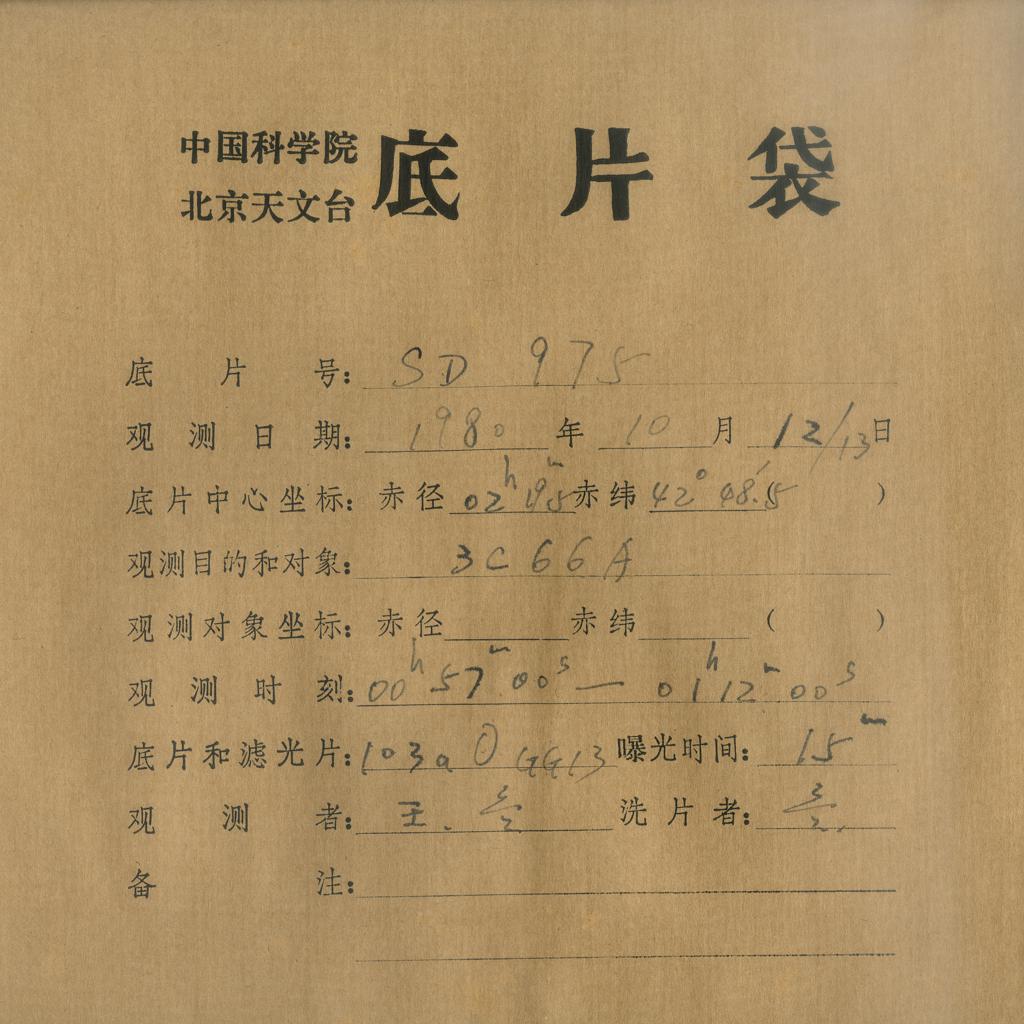 中国科学院
北京天文台
底片袋
底片号: SD 975
观测日期: 1980 年 10 月 12/13日
底片中心坐标: 赤径 02ʰ 19ᵐ5 赤纬 42° 48.′5 )
观测目的和对象: 3C 66A
观测对象坐标: 赤径 赤纬 ( )
观测时刻: 00ʰ 57ᵐ 00ˢ — 01ʰ 12ᵐ 00ˢ
底片和滤光片: 103a O GG13 曝光时间: 15ᵐ
观测者: 王. 洗片者:
备注: